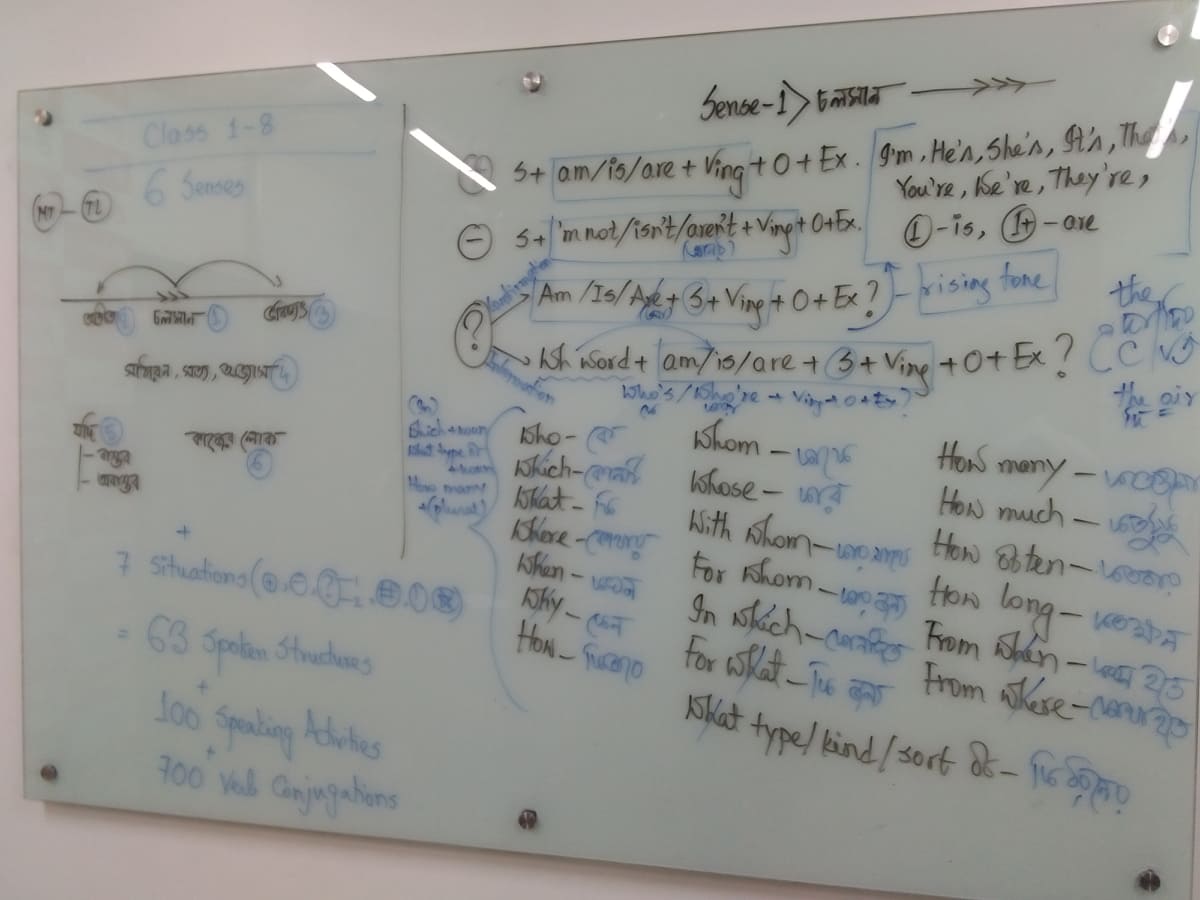 Class 1-8
6 Senses
MT - TL
অতীত 2 চলমান 1 ভবিষ্যত 3
4
যদি 5
- বাস্তব
- অবাস্তব
কাজের লোক 6
+
7 Situations (+, -, ?
= 63 Spoken Structures
+
100 Speaking Activities
+
700 Verb Conjugations
Sense-1> চলমান
+ S+ am/is/are + Ving + O + Ex.
- S+ 'm not/isn't/aren't + Ving + O+Ex.
I'm, He's, She's, It's, That's,
You're, We're, They're,
1 - is, 1+ - are
?
Confirmation
Am/Is/Are + S + Ving + O + Ex? - rising tone
Information
Wh word + am/is/are + S + Ving + O + Ex?
Who's/Who're + Ving + O + Ex?
the
C C V
the air
Which + noun
What type of
+ noun
How many
+ (plural)
Who - কে
Which - কোনটি
What - কি
Where - কোথায়
When - কখন
Why - কেন
How - কিভাবে
Whom - কাকে
Whose - কার
With Whom - কার সাথে
For Whom - কার জন্য
In which - কোনটিতে
For What - কি জন্য
What type/kind/sort of - কি ধরনের
How many - কতগুলো
How much - কতটুকু
How often - কতবার
How long - কতক্ষণ
From When - কখন হতে
From where - কোথা হতে